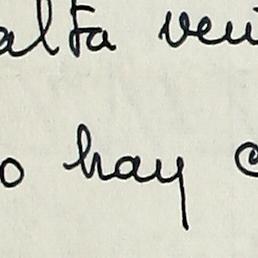 alta veu
o hay c